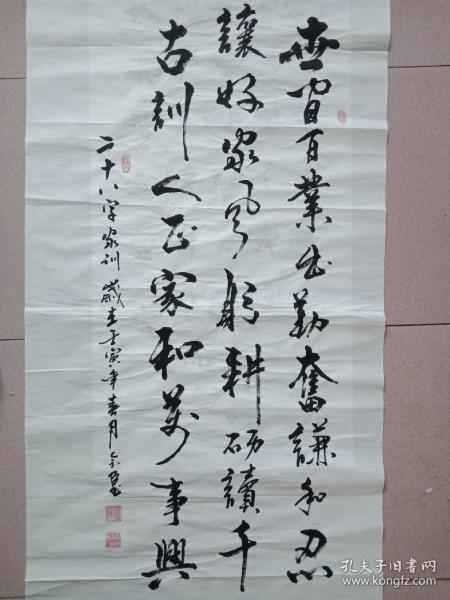 世間百業出勤奮謙和忍
讓好家風躬耕砺讀千
古訓人正家和萬事興
二十八字家訓歲在壬寅年春月
孔夫子旧书网
www.kongfz.com